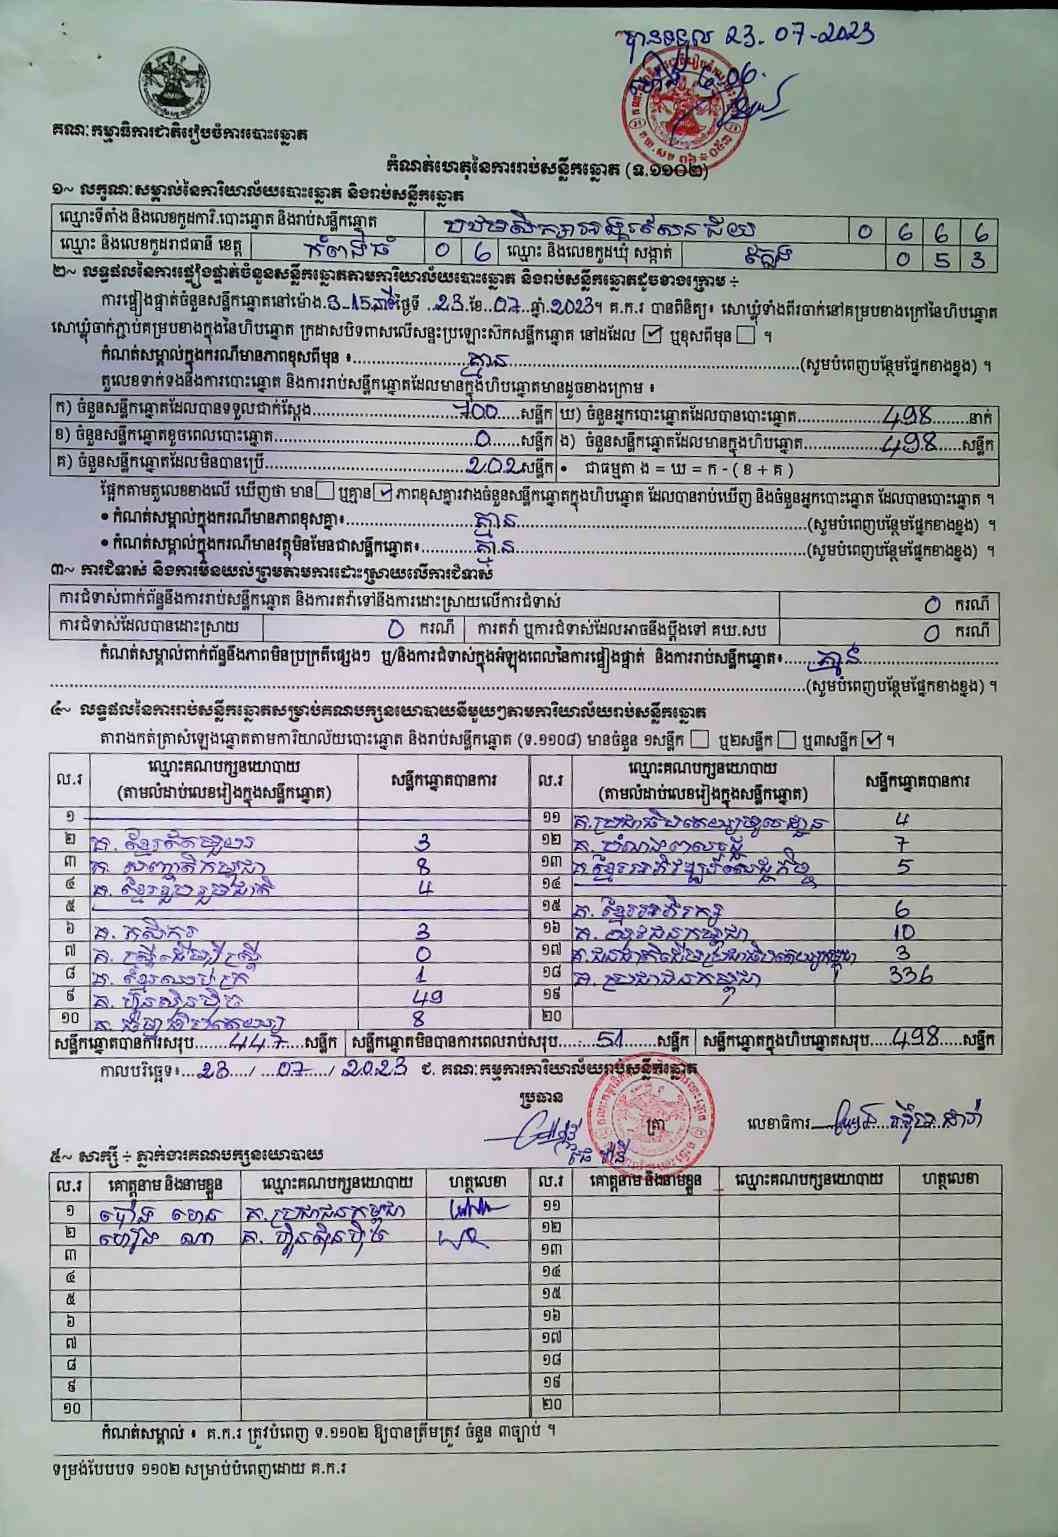 បានទទួល 23-07-2023
គណៈកម្មាធិការជាតិរៀបចំការបោះឆ្នោត
កំណត់ហេតុនៃការរាប់សន្លឹកឆ្នោត (ទ.១១០២)
១~ លក្ខណៈសម្គាល់នៃការិយាល័យបោះឆ្នោត និងរាប់សន្លឹកឆ្នោត
ឈ្មោះទីតាំង និងលេខកូដការិ.បោះឆ្នោត និងរាប់សន្លឹកឆ្នោត 0 6 6 6
ឈ្មោះ និងលេខកូដរាជធានី ខេត្ត កំពង់ធំ 0 6 ឈ្មោះ និងលេខកូដឃុំ សង្កាត់ 0 5 3
២~ លទ្ធផលនៃការផ្ទៀងផ្ទាត់ចំនួនសន្លឹកឆ្នោតតាមការិយាល័យបោះឆ្នោត និងរាប់សន្លឹកឆ្នោតដូចខាងក្រោម ÷
ការផ្ទៀងផ្ទាត់ចំនួនសន្លឹកឆ្នោតនៅម៉ោង 3-15នាទី ថ្ងៃទី 23 ខែ 07 ឆ្នាំ 2023។ គ.ក.រ បានពិនិត្យ៖ សោឃ្លុំទាំងពីរចាក់នៅគម្របខាងក្រៅនៃហិបឆ្នោត
សោឃ្លុំចាក់ភ្ជាប់គម្របខាងក្នុងនៃហិបឆ្នោត ក្រដាសបិទពាសលើសន្ទះប្រឡោះស៊កសន្លឹកឆ្នោត នៅដដែល ☑ ឬខុសពីមុន ☐ ។
កំណត់សម្គាល់ក្នុងករណីមានភាពខុសពីមុន ៖ គ្មាន (សូមបំពេញបន្ថែមផ្នែកខាងខ្នង) ។
តួលេខទាក់ទងនឹងការបោះឆ្នោត និងការរាប់សន្លឹកឆ្នោតដែលមានក្នុងហិបឆ្នោតមានដូចខាងក្រោម ៖
ក) ចំនួនសន្លឹកឆ្នោតដែលបានទទួលជាក់ស្តែង 700 សន្លឹក ឃ) ចំនួនអ្នកបោះឆ្នោតដែលបានបោះឆ្នោត 498 នាក់
ខ) ចំនួនសន្លឹកឆ្នោតខូចពេលបោះឆ្នោត 0 សន្លឹក ង) ចំនួនសន្លឹកឆ្នោតដែលមានក្នុងហិបឆ្នោត 498 សន្លឹក
គ) ចំនួនសន្លឹកឆ្នោតដែលមិនបានប្រើ 202 សន្លឹក • ជាធម្មតា ង = ឃ = ក - ( ខ + គ )
ផ្អែកតាមតួលេខខាងលើ ឃើញថា មាន ☐ ឬគ្មាន ☑ ភាពខុសគ្នារវាងចំនួនសន្លឹកឆ្នោតក្នុងហិបឆ្នោត ដែលបានរាប់ឃើញ និងចំនួនអ្នកបោះឆ្នោត ដែលបានបោះឆ្នោត ។
• កំណត់សម្គាល់ក្នុងករណីមានភាពខុសគ្នា៖ គ្មាន (សូមបំពេញបន្ថែមផ្នែកខាងខ្នង) ។
• កំណត់សម្គាល់ក្នុងករណីមានវត្ថុមិនមែនជាសន្លឹកឆ្នោត៖ គ្មាន (សូមបំពេញបន្ថែមផ្នែកខាងខ្នង) ។
៣~ ការជំទាស់ និងការមិនយល់ព្រមតាមការដោះស្រាយលើការជំទាស់
ការជំទាស់ពាក់ព័ន្ធនឹងការរាប់សន្លឹកឆ្នោត និងការតវ៉ាទៅនឹងការដោះស្រាយលើការជំទាស់ 0 ករណី
ការជំទាស់ដែលបានដោះស្រាយ 0 ករណី ការតវ៉ា ឬការជំទាស់ដែលអាចនឹងប្តឹងទៅ គឃ.សប 0 ករណី
កំណត់សម្គាល់ពាក់ព័ន្ធនឹងភាពមិនប្រក្រតីផ្សេងៗ ឬ/និងការជំទាស់ក្នុងអំឡុងពេលនៃការផ្ទៀងផ្ទាត់ និងការរាប់សន្លឹកឆ្នោត៖ គ្មាន
(សូមបំពេញបន្ថែមផ្នែកខាងខ្នង) ។
៤~ លទ្ធផលនៃការរាប់សន្លឹកឆ្នោតសម្រាប់គណបក្សនយោបាយនីមួយៗតាមការិយាល័យរាប់សន្លឹកឆ្នោត
តារាងកត់ត្រាសំឡេងឆ្នោតតាមការិយាល័យបោះឆ្នោត និងរាប់សន្លឹកឆ្នោត (ទ.១១០៨) មានចំនួន ១សន្លឹក ☐ ឬ២សន្លឹក ☐ ឬ៣សន្លឹក ☑ ។
ល.រ ឈ្មោះគណបក្សនយោបាយ (តាមលំដាប់លេខរៀងក្នុងសន្លឹកឆ្នោត) សន្លឹកឆ្នោតបានការ ល.រ ឈ្មោះគណបក្សនយោបាយ (តាមលំដាប់លេខរៀងក្នុងសន្លឹកឆ្នោត) សន្លឹកឆ្នោតបានការ
១ ១១ គ.ប្រជាធិបតេយ្យមូលដ្ឋាន 4
២ គ. ខ្មែរតែមួយ 3 ១២ គ. 7
៣ គ. សញ្ជាតិកម្ពុជា 8 ១៣ គ.ខ្មែរអភិវឌ្ឍន៍សេដ្ឋកិច្ច 5
៤ គ. ខ្មែររួបរួមជាតិ 4 ១៤
៥ ១៥ គ. ខ្មែរអភិរក្ស 6
៦ គ. កសិករ 3 ១៦ គ. យុវជនកម្ពុជា 10
៧ គ. ស្ត្រីដើម្បីស្ត្រី 0 ១៧ គ.ជនជាតិដើមប្រជាធិបតេយ្យកម្ពុជា 3
៨ គ. ខ្មែរឈប់ក្រ 1 ១៨ គ. ប្រជាជនកម្ពុជា 336
៩ គ. ហ៊្វុនស៊ិនប៉ិច 49 ១៩
១០ គ. ធម្មាធិបតេយ្យ 8 ២០
សន្លឹកឆ្នោតបានការសរុប 447 សន្លឹក សន្លឹកឆ្នោតមិនបានការពេលរាប់សរុប 51 សន្លឹក សន្លឹកឆ្នោតក្នុងហិបឆ្នោតសរុប 498 សន្លឹក
កាលបរិច្ឆេទ៖ 23 / 07 / 2023 ជ. គណៈកម្មការការិយាល័យរាប់សន្លឹកឆ្នោត
ប្រធាន
ត្រា លេខាធិការ
៥~ សាក្សី ÷ ភ្នាក់ងារគណបក្សនយោបាយ
ល.រ គោត្តនាម និងនាមខ្លួន ឈ្មោះគណបក្សនយោបាយ ហត្ថលេខា ល.រ គោត្តនាម និងនាមខ្លួន ឈ្មោះគណបក្សនយោបាយ ហត្ថលេខា
១ គ.ប្រជាជនកម្ពុជា ១១
២ គ. ហ៊្វុនស៊ិនប៉ិច ១២
៣ ១៣
៤ ១៤
៥ ១៥
៦ ១៦
៧ ១៧
៨ ១៨
៩ ១៩
១០ ២០
កំណត់សម្គាល់ ៖ គ.ក.រ ត្រូវបំពេញ ទ.១១០២ ឱ្យបានត្រឹមត្រូវ ចំនួន ៣ច្បាប់ ។
ទម្រង់បែបបទ ១១០២ សម្រាប់បំពេញដោយ គ.ក.រ